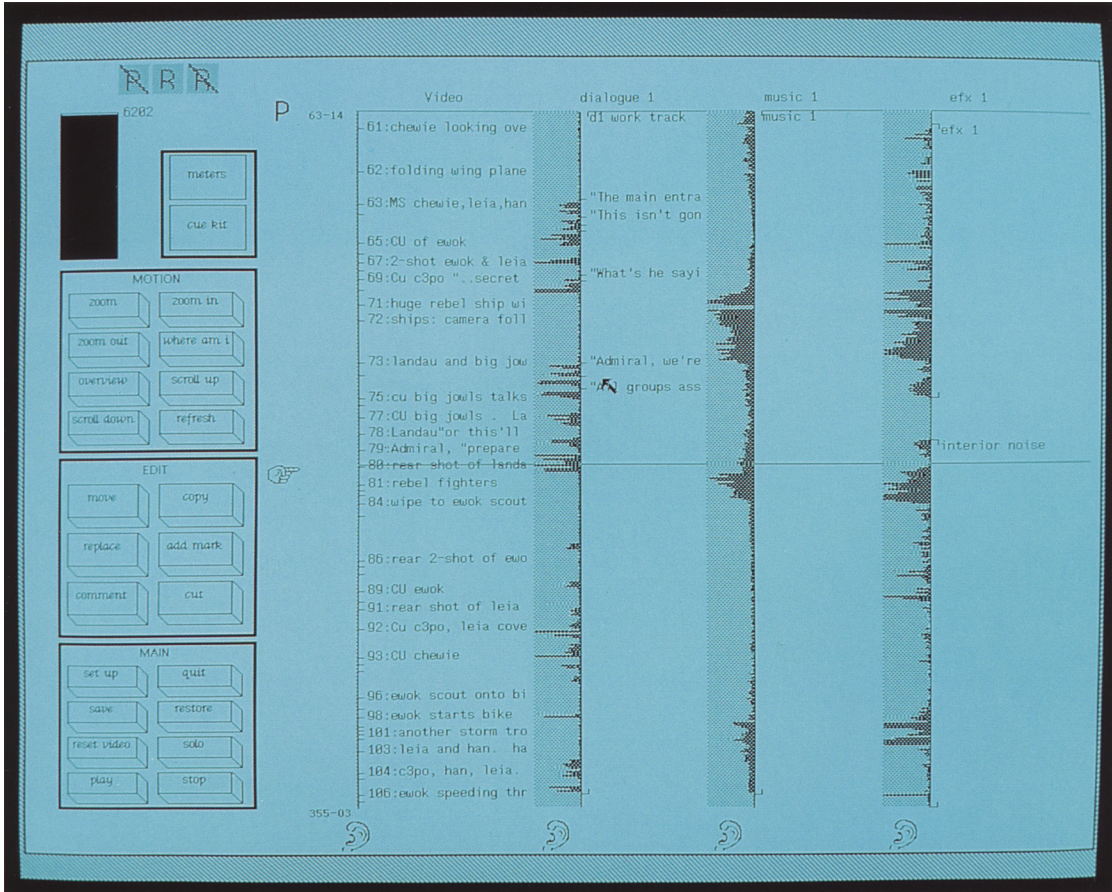 R R R
6202
P
63-14
Video
dialogue 1
music 1
efx 1
meters
cue kit
MOTION
zoom
zoom in
zoom out
where am i
overview
scroll up
scroll down
refresh
EDIT
move
copy
replace
add mark
comment
cut
MAIN
set up
quit
save
restore
reset video
solo
play
stop
61:chewie looking ove
62:folding wing plane
63:MS chewie,leia,han
65:CU of ewok
67:2-shot ewok & leia
69:Cu c3po "..secret
71:huge rebel ship wi
72:ships: camera foll
73:landau and big jow
75:cu big jowls talks
77:CU big jowls . La
78:Landau"or this'll
79:Admiral, "prepare
80:rear shot of landa
81:rebel fighters
84:wipe to ewok scout
86:rear 2-shot of ewo
89:CU ewok
91:rear shot of leia
92:Cu c3po, leia cove
93:CU chewie
96:ewok scout onto bi
98:ewok starts bike
101:another storm tro
103:leia and han. ha
104:c3po, han, leia.
106:ewok speeding thr
355-03
d1 work track
"The main entra
"This isn't gon
"What's he sayi
"Admiral, we're
groups ass
music 1
efx 1
interior noise